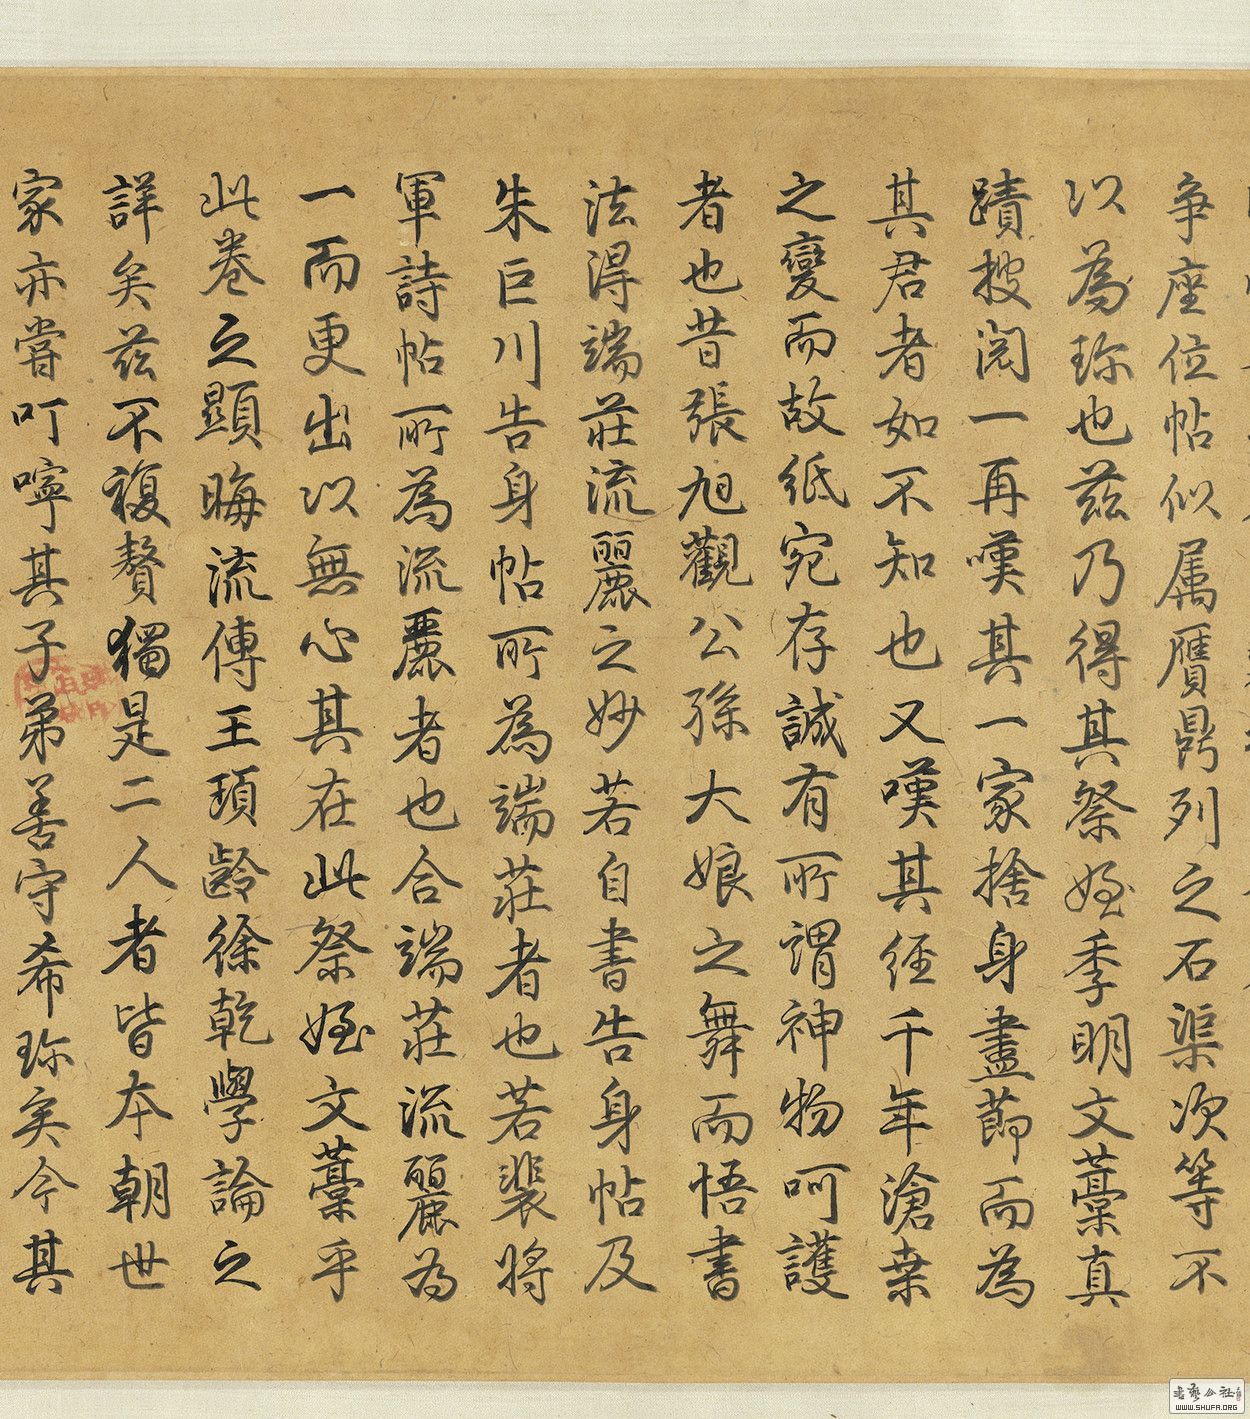 爭座位帖似属贋鼎列之石渠次等不
以為珎也兹乃得其祭姪季明文藁真
蹟披閱一再嘆其一家捨身盡節而為
其君者如不知也又嘆其經千年滄桒
之變而故紙宛存誠有所謂神物呵護
者也昔張旭觀公孫大娘之舞而悟書
法得端莊流麗之妙若自書告身帖及
朱巨川告身帖所為端莊者也若裴將
軍詩帖所為流麗者也合端莊流麗為
一而更出以無心其在此祭姪文藁乎
此卷之顯晦流傳王頊齡徐乾學論之
詳矣兹不複贅獨是二人者皆本朝世
家亦嘗叮嚀其子弟善守希珎矣今其
WWW.SHUFA.ORG